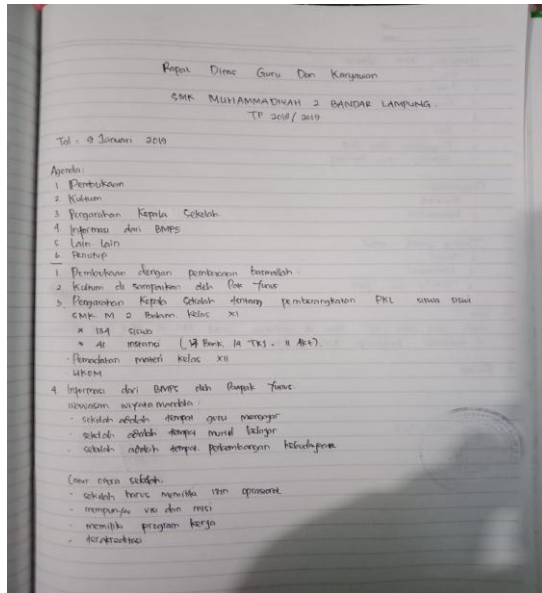 Rapat Dinas Guru Dan Karyawan
SMK MUHAMMADIYAH 2 BANDAR LAMPUNG.
TP 2018/2019
Tgl : 9 Januari 2019
Agenda :
1 Pembukaan
2 Kultum
3 Pengarahan Kepala Sekolah
4 Informasi dari BMPS
5 Lain-Lain
6 Penutup
1 Pembukaan dengan pembacaan basmallah.
2 Kultum di sampaikan oleh Pak Yunus
3. Pengarahan Kepala Sekolah tentang pemberangkatan PKL siswa siswi
SMK M 2 Balam. Kelas XI
* 134 siswa
* 41 instansi ( Bank, 14 TKJ. 11 Akt).
- Pemadatan materi kelas XII
UKOM
4 Informasi dari BMPS oleh Bapak Yunus.
wawasan wiyata mandala :
- sekolah adalah tempat guru mengajar
- sekolah adalah tempat murid belajar
- sekolah adalah tempat perkembangan kebudayaan
sekolah.
- sekolah harus memiliki izin oprasional
- mempunyai visi dan misi
- memiliki program kerja
- terakreditasi